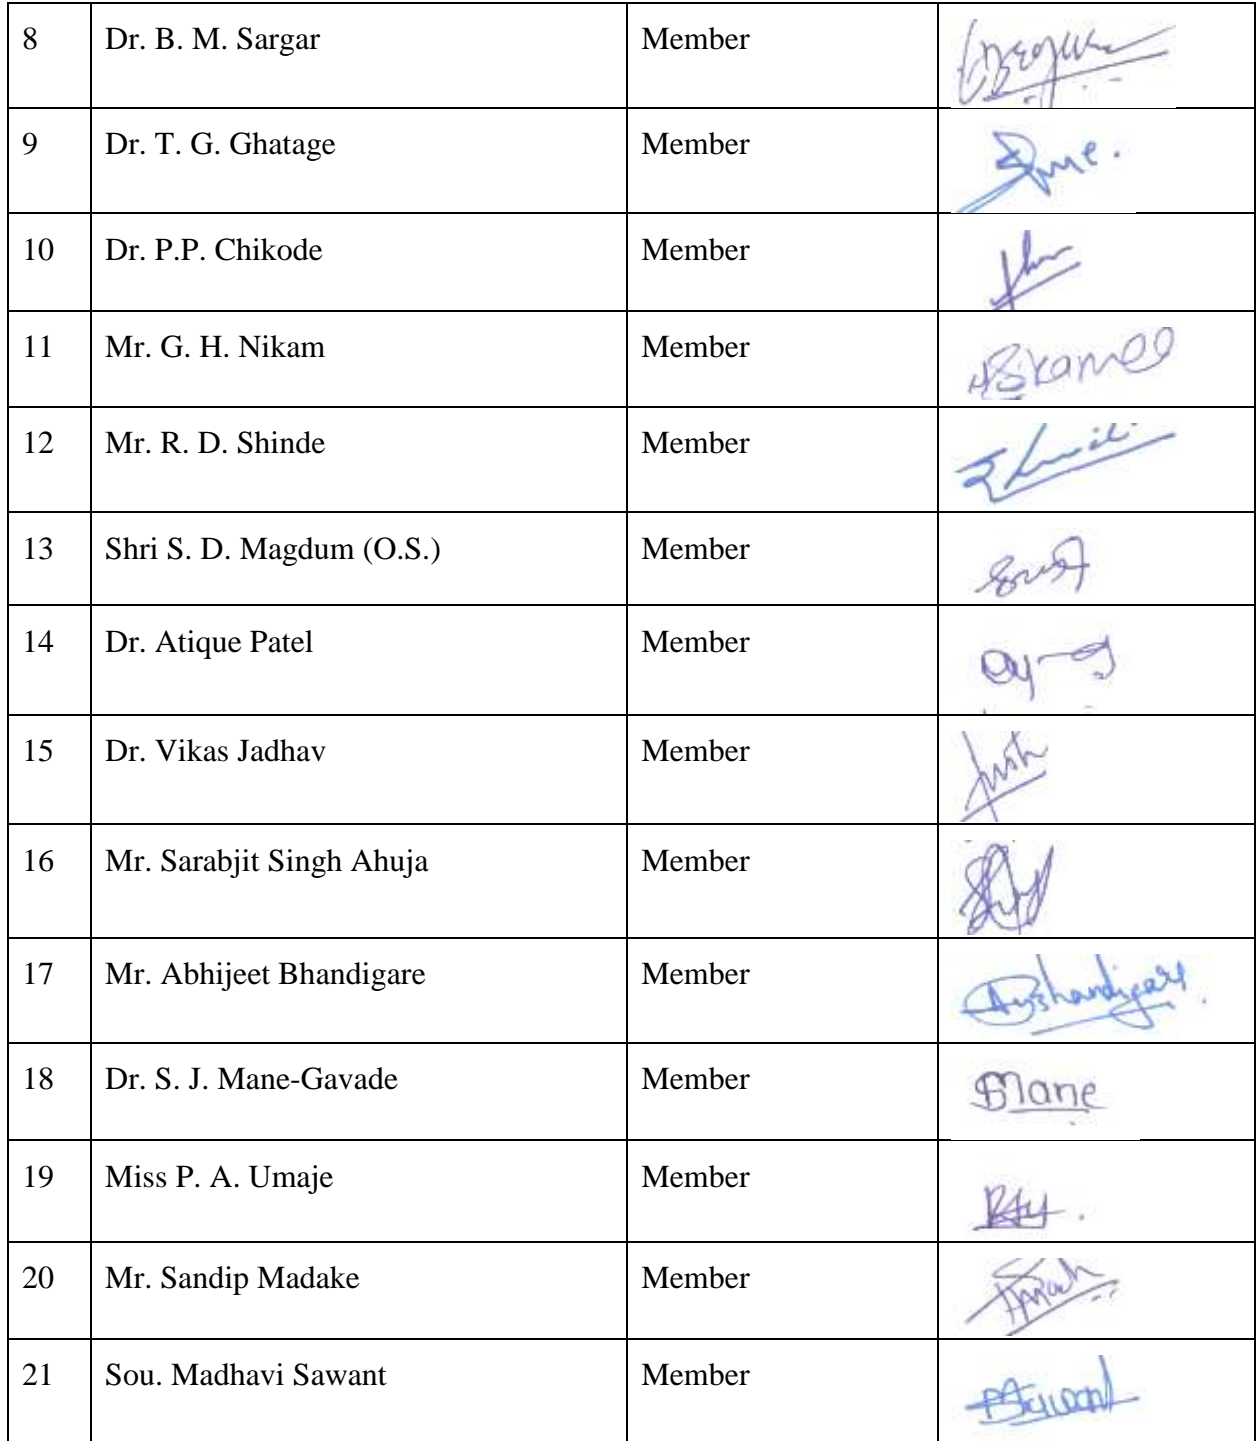 8 Dr. B. M. Sargar Member
9 Dr. T. G. Ghatage Member
10 Dr. P.P. Chikode Member
11 Mr. G. H. Nikam Member
12 Mr. R. D. Shinde Member
13 Shri S. D. Magdum (O.S.) Member
14 Dr. Atique Patel Member
15 Dr. Vikas Jadhav Member
16 Mr. Sarabjit Singh Ahuja Member
17 Mr. Abhijeet Bhandigare Member
18 Dr. S. J. Mane-Gavade Member SMane
19 Miss P. A. Umaje Member
20 Mr. Sandip Madake Member
21 Sou. Madhavi Sawant Member